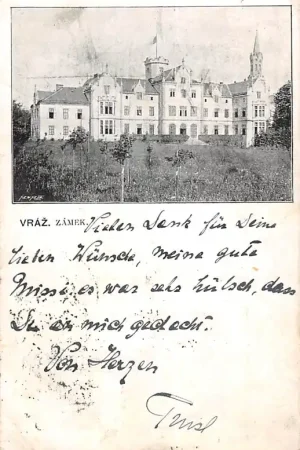 VRÁŽ. ZÁMEK. Vielen Dank für Deine
lieben Wünsche, meine gute
Missi es war sehr hübsch, dass
Du an mich gedacht.
Von Herzen